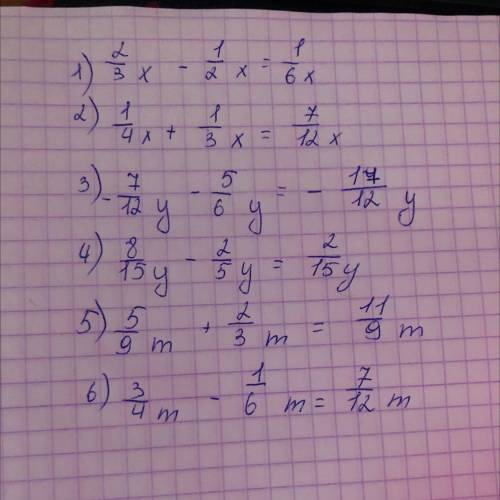 1) 2/3 x - 1/2 x = 1/6 x
2) 1/4 x + 1/3 x = 7/12 x
3) - 7/12 y - 5/6 y = - 17/12 y
4) 8/15 y - 2/5 y = 2/15 y
5) 5/9 m + 2/3 m = 11/9 m
6) 3/4 m - 1/6 m = 7/12 m